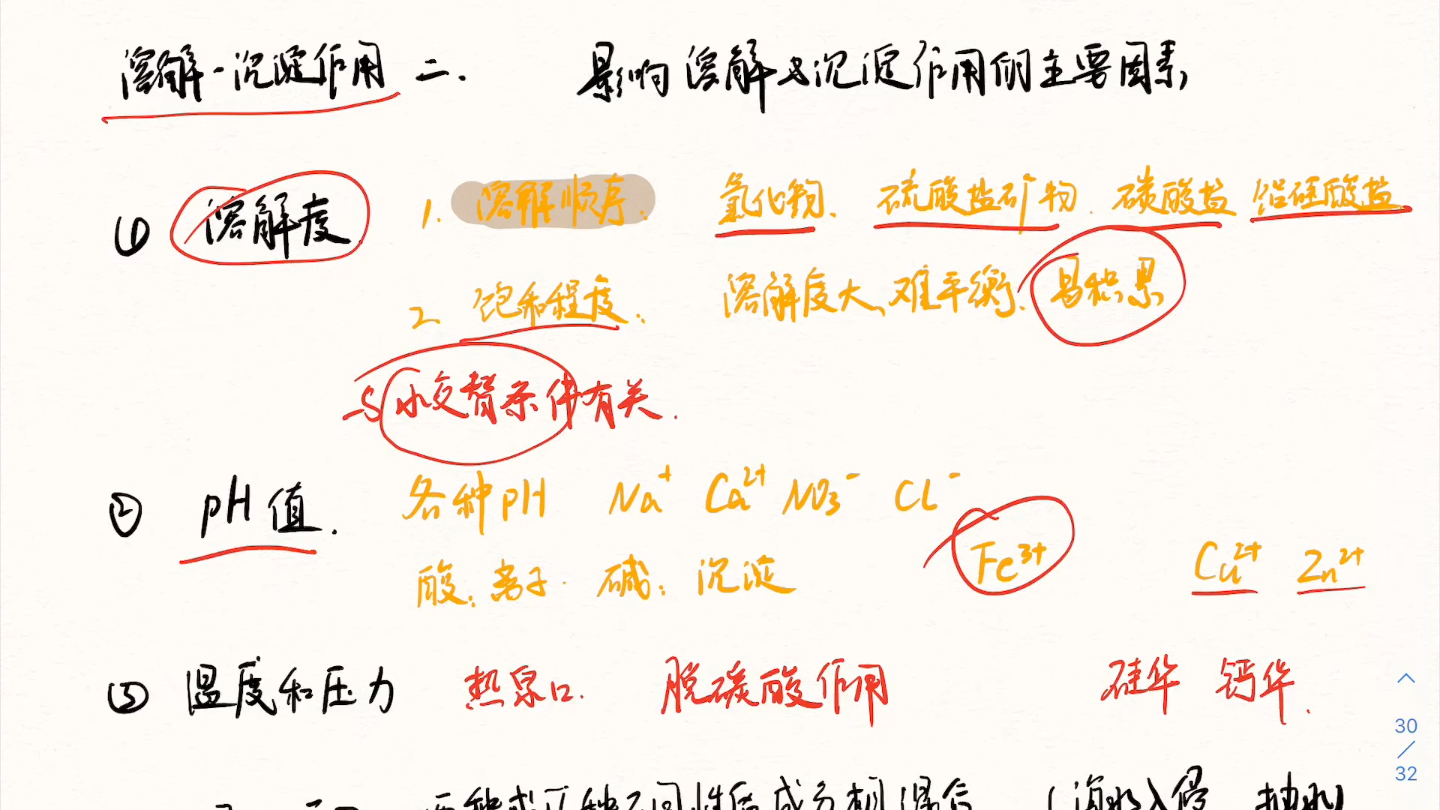 溶解-沉淀作用 二. 影响溶解与沉淀作用的主要因素
(1) 溶解度 1. 溶解顺序: 氯化物、硫酸盐矿物、碳酸盐 铝硅酸盐
2. 饱和程度: 溶解度大、难平衡、易积累
与水交替条件有关.
② pH值. 各种pH Na⁺ Ca²⁺ NO₃⁻ Cl⁻
酸: 离子. 碱: 沉淀 Fe³⁺ Cu²⁺ Zn²⁺
③ 温度和压力 热泉口. 脱碳酸作用 硅华 钙华.
两种或几种不同性质成分相混合 (海水入侵 抽水
30
/
32